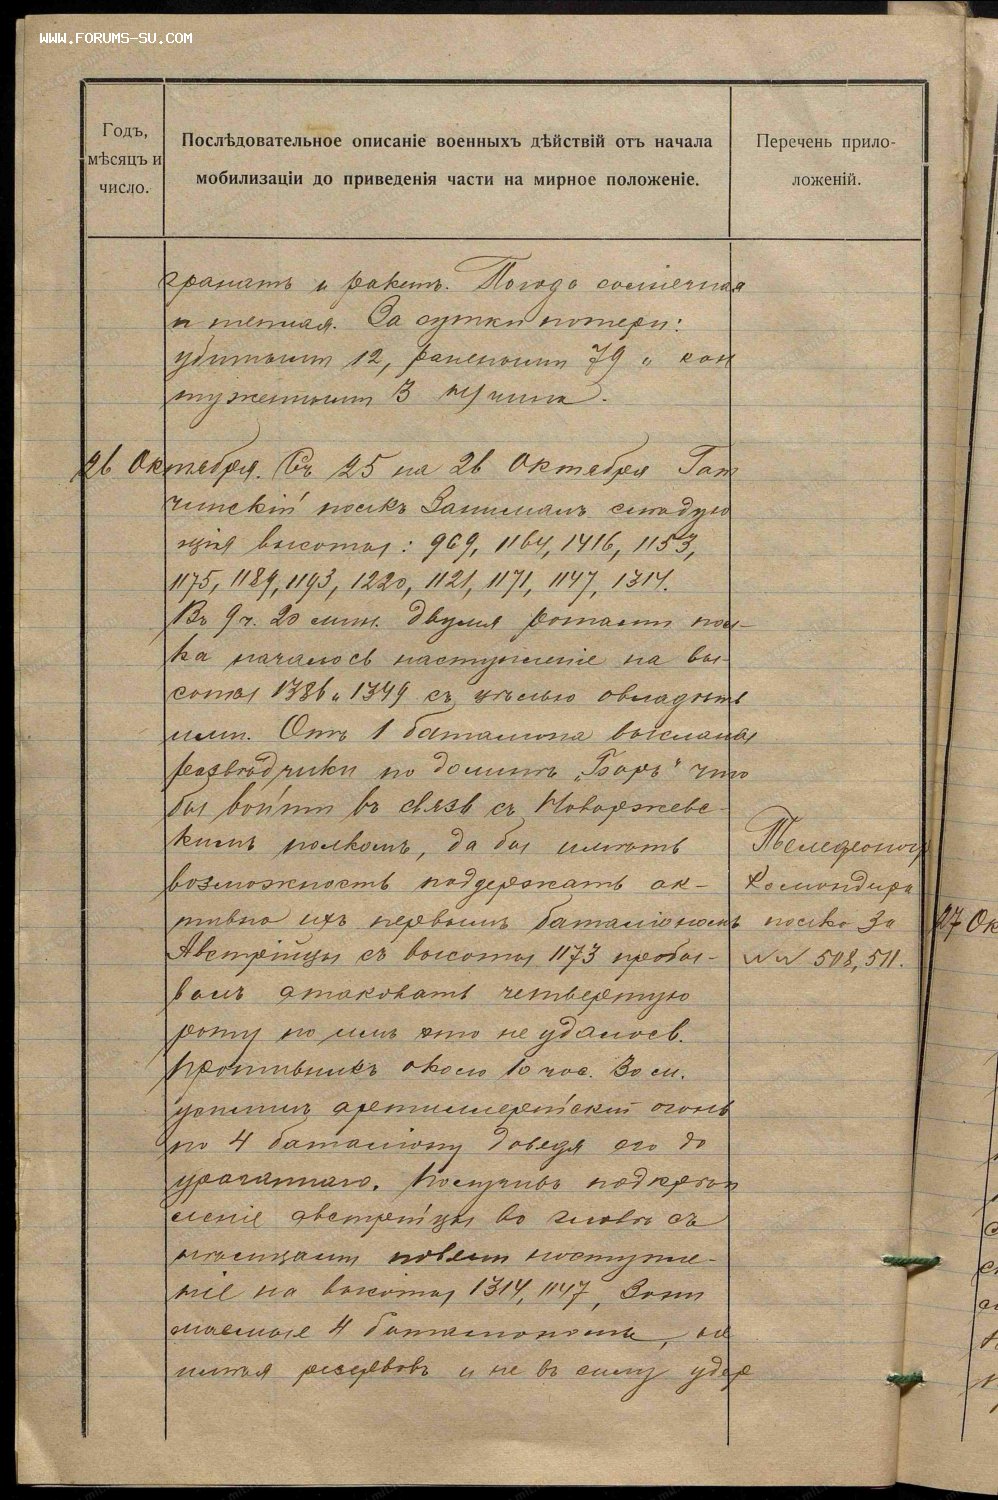 WWW.FORUMS-SU.COM
Годъ, мѣсяцъ и число.
Послѣдовательное описаніе военныхъ дѣйствій отъ начала
мобилизаціи до приведенія части на мирное положеніе.
Перечень прило-
женій.
гранатъ и ракетъ. Погода солнечная
и теплая. За сутки потери:
убитыми 12, ранеными 79 и кон
туженными 3 н/чина.
26 Октября. Съ 25 на 26 Октября Гат
чинскій полкъ занималъ слѣдую
щія высоты: 969, 1164, 1416, 1153,
1175, 1189, 1193, 1220, 1121, 1171, 1147, 1314.
Въ 9 ч. 20 мин. двумя ротами пол-
ка началось наступленіе на вы-
соты 1386 и 1349 съ цѣлью овладѣть
ими. Отъ 1 баталіона высланы
развѣдчики по долинѣ „Баръ" что
бы войти въ связь съ Новоржевс-
кимъ полкомъ, да бы имѣть
возможность поддержать ак-
тивно ихъ первымъ баталіономъ
Австрійцы съ высоты 1173 пробы-
вали атаковать четвертую
роту но имъ это не удалось.
Противникъ около 10 час. 30 м.
усилилъ артиллерійскій огонь
по 4 баталіону доведя его до
ураганнаго. Получивъ подкрѣп
леніе австрійцы во главѣ съ
нѣмцами повели наступле-
ніе на высоты 1314, 1147, зани
маемые 4 баталіономъ, не
имѣя резервовъ и не въ силу удер
Телефоногр
Командира
полка за
№№ 508, 511.
27 Ок